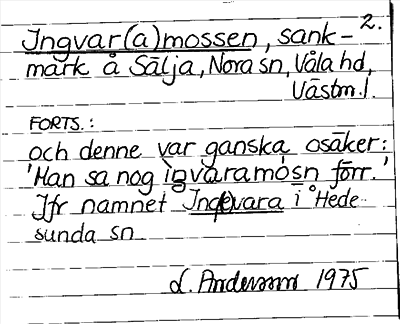 2.
Ingvar(a)mossen, sank-
mark å Sälja, Nora sn, Våla hd,
Västm. l.
FORTS.:
och denne var ganska osäker:
'Han sa nog ìngvaramósn förr.'
Jfr namnet Ing(e)vara i Hede-
sunda sn
L. Andersson 1975